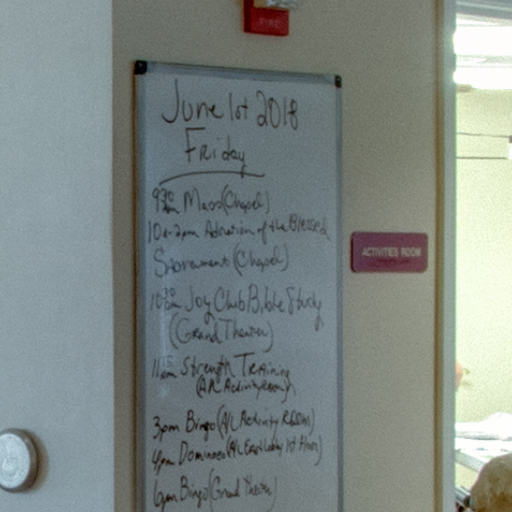 FIRE
June 1st 2018
Friday
9:30am Mass (Chapel)
10am-2pm Adoration of the Blessed
Sacrament (Chapel)
10:30am Joy Club Bible Study
(Grand Theater)
11am Strength Training
(A/L Activity Room)
3pm Bingo (A/L Activity Room)
4pm Dominoes (A/L East Lobby 1st Floor)
6pm Bingo (Grand Theater)
ACTIVITIES ROOM